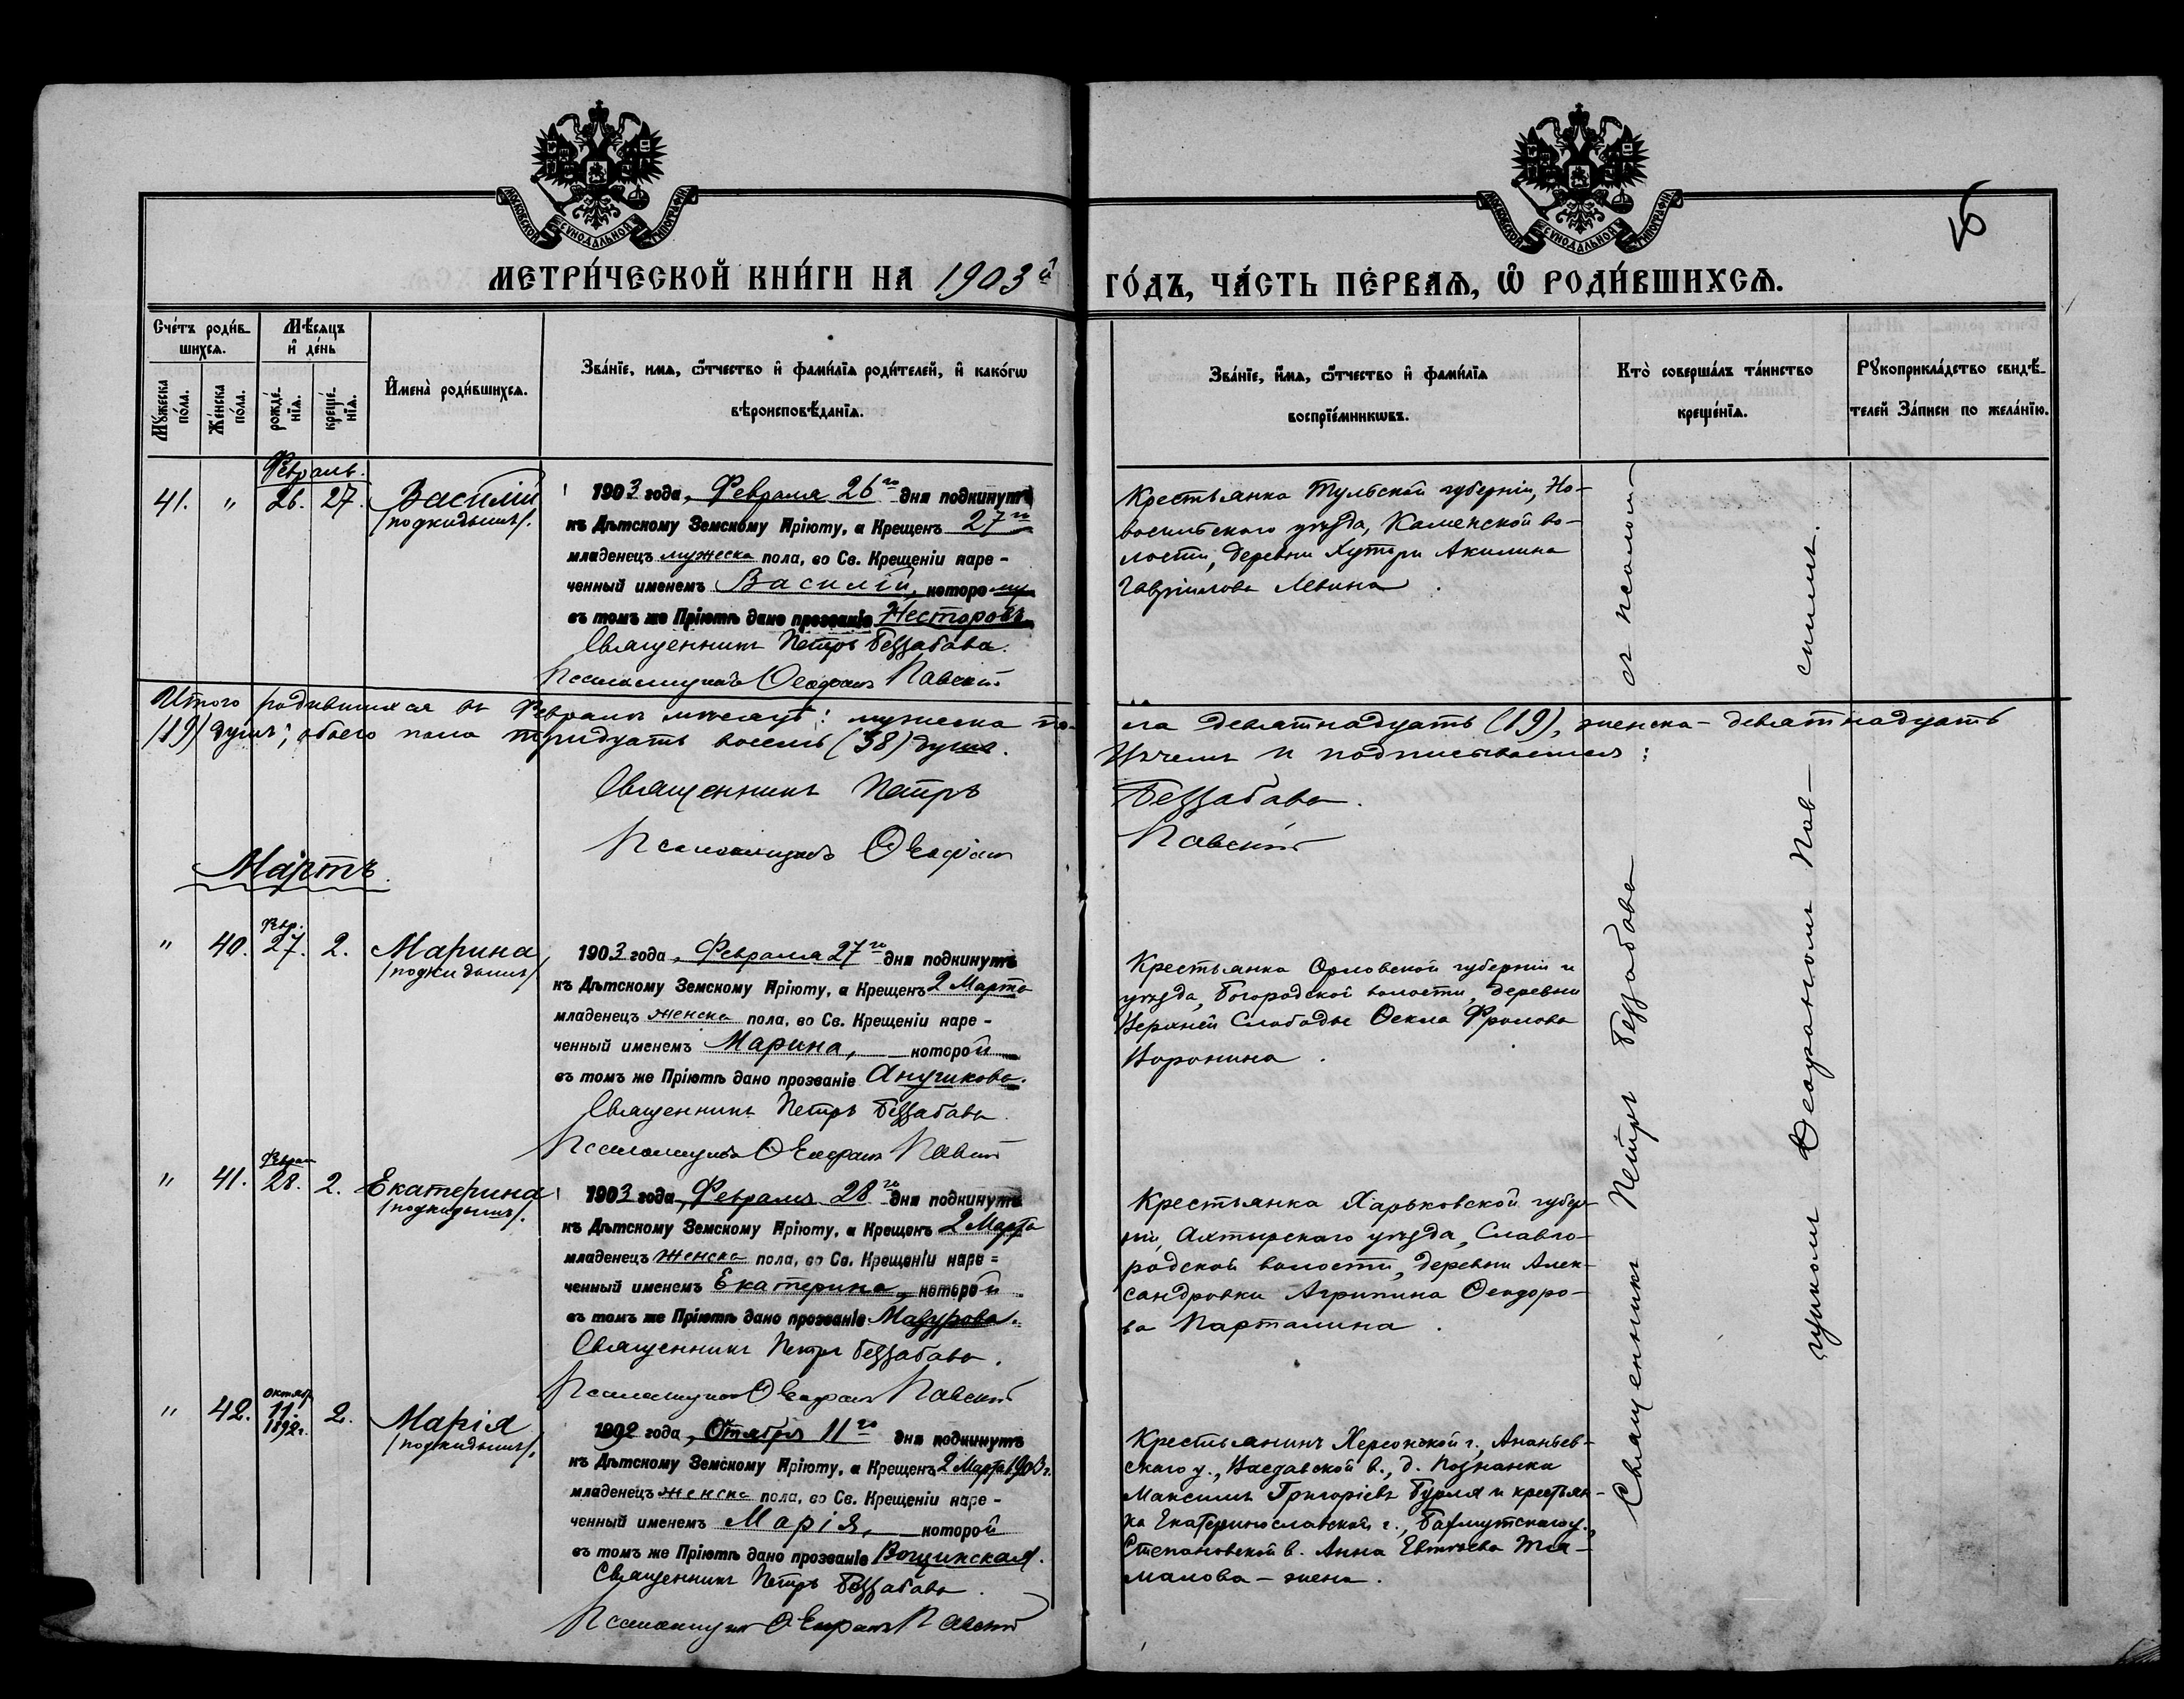 МОСКОВСКОЙ СѴНОДАЛЬНОЙ ТИПОГРАФІИ
МОСКОВСКОЙ СѴНОДАЛЬНОЙ ТИПОГРАФІИ
МЕТРИ́ЧЕСКОЙ КНИ́ГИ НА 1903й ГО́ДЪ, ЧА́СТЬ ПЕ́РВАѦ, Ѽ РОДИ́ВШИХСѦ.
Сче́тъ роди́в-
шихсѧ.
Мѣ́сѧцъ
и҆ де́нь
Мꙋ́жеска
по́ла.
Же́нска
по́ла.
рожде́-
нїѧ.
креще́-
нїѧ.
И҆мена̀ роди́вшихсѧ.
Зва́нїе, имѧ, ѻ҆́тчество и҆ фами́лїѧ роди́телей, и҆ како́гѡ
вѣроисповѣ́данїѧ.
Зва́нїе, и҆́мѧ, ѻ҆́тчество и҆ фами́лїѧ
воспрїе́мникѡвъ.
Кто̀ соверша́лъ та́инство
креще́нїѧ.
Рꙋкоприкла́дство свидѣ́-
телей за́писи по жела́нїю.
Февраль.
41. " 26. 27. Василій
/подкидышъ/.
1903 года, Февраля 26го дня подкинутъ
къ Дѣтскому Земскому Пріюту, а Крещенъ 27го
младенецъ мужеска пола, во Св. Крещеніи наре-
ченный именемъ Василій, которому
въ томъ же Пріютѣ дано прозваніе Несторовъ.
Священникъ Петръ Беззабава.
Псаломщикъ Ѳеофанъ Павскій
Крестьянка Тульской губерніи, Но-
восильскаго уѣзда, Каменской во-
лости, деревни Хутори Акилина
Гавріилова Левина.
Итого родившихся въ Февралѣ мѣсяцѣ: мужеска по-
ла девятнадцать (19), женска - девятнадцать
(19) душъ; обоего пола тридцать восемь (38) душъ.
И чемъ и подписываемся:
Священникъ Петръ Беззабава.
Псаломщикъ Ѳеофанъ Павскій
Мартъ.
" 40. Февр. 27. 2. Марина
/подкидышъ/
1903 года, Февраля 27го дня подкинутъ
къ Дѣтскому Земскому Пріюту, а Крещенъ 2 Марта
младенецъ женска пола, во Св. Крещеніи наре-
ченный именемъ Марина, которой
въ томъ же Пріютѣ дано прозваніе Анучикова.
Священникъ Петръ Беззабава.
Псаломщикъ Ѳеофанъ Павскій
Крестьянка Орловской губерніи и
уѣзда, Богородской волости, деревни
Верхней Слободы Ѳекла Фролова
Воронина.
" 41. Февраля 28. 2. Екатерина
/подкидышъ/.
1903 года, Февраля 28го дня подкинутъ
къ Дѣтскому Земскому Пріюту, а Крещенъ 2 Марта
младенецъ женска пола, во Св. Крещеніи наре-
ченный именемъ Екатерина, которой
въ томъ же Пріютѣ дано прозваніе Мазурова.
Священникъ Петръ Беззабава.
Псаломщикъ Ѳеофанъ Павскій
Крестьянка Харьковской губер-
ніи, Ахтырскаго уѣзда, Славго-
родской волости, деревни Алек-
сандровки Агрипина Ѳеодоро-
ва Парталина.
" 42. Октяб. 11. 1892г. 2. Марія
/подкидышъ/.
1892 года, Октября 11го дня подкинутъ
къ Дѣтскому Земскому Пріюту, а Крещенъ 2 Марта 1903 г.
младенецъ женска пола, во Св. Крещеніи наре-
ченный именемъ Марія, которой
въ томъ же Пріютѣ дано прозваніе Вощинская.
Священникъ Петръ Беззабава.
Псаломщикъ Ѳеофанъ Павскій
Крестьянинъ Херсонской г., Ананьев-
скаго у., в., д. Познанка
Максимъ Григорьевъ Бурля и крестьян-
ка Екатеринославской г., Бахмутскаго у.,
Степановской в. Анна Евтіева
малова - жена.
Священникъ Петръ Беззабава съ псалом-
щикомъ Ѳеофаномъ Пав-
скимъ.